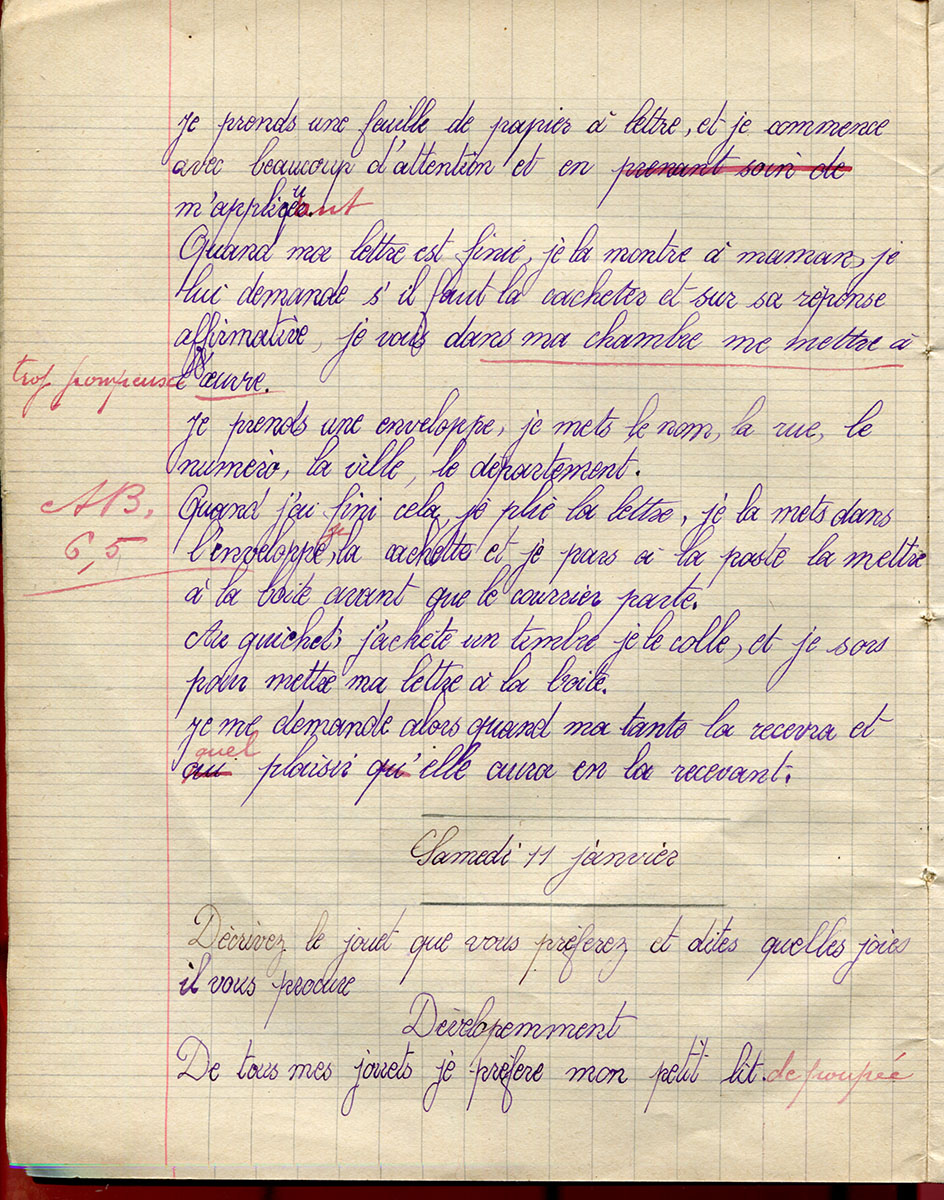 Je prends une feuille de papier à lettre, et je commence
avec beaucoup d'attention et en prenant soin de
m'appliquant
Quand ma lettre est finie, je la montre à maman, je
lui demande s'il faut la cacheter et sur sa réponse
affirmative, je vais dans ma chambre me mettre à
trop pompeuse
l'œuvre.
Je prends une enveloppe, je mets le nom, la rue, le
numéro, la ville, le département.
AB. Quand j'ai fini cela, je plie la lettre, je la mets dans
6,5 l'enveloppe, je la cachette et je pars à la poste la mettre
à la boite avant que le courrier parte.
Au guichet, j'achète un timbre je le colle, et je sors
pour mettre ma lettre à la boite.
Je me demande alors quand ma tante la recevra et
quel
qui plaisir qu'elle aura en la recevant.
Samedi 11 janvier
Décrivez le jouet que vous préferez et dites quelles joies
il vous procure
Dévelopemment
De tous mes jouets je préfère mon petit lit. de poupée